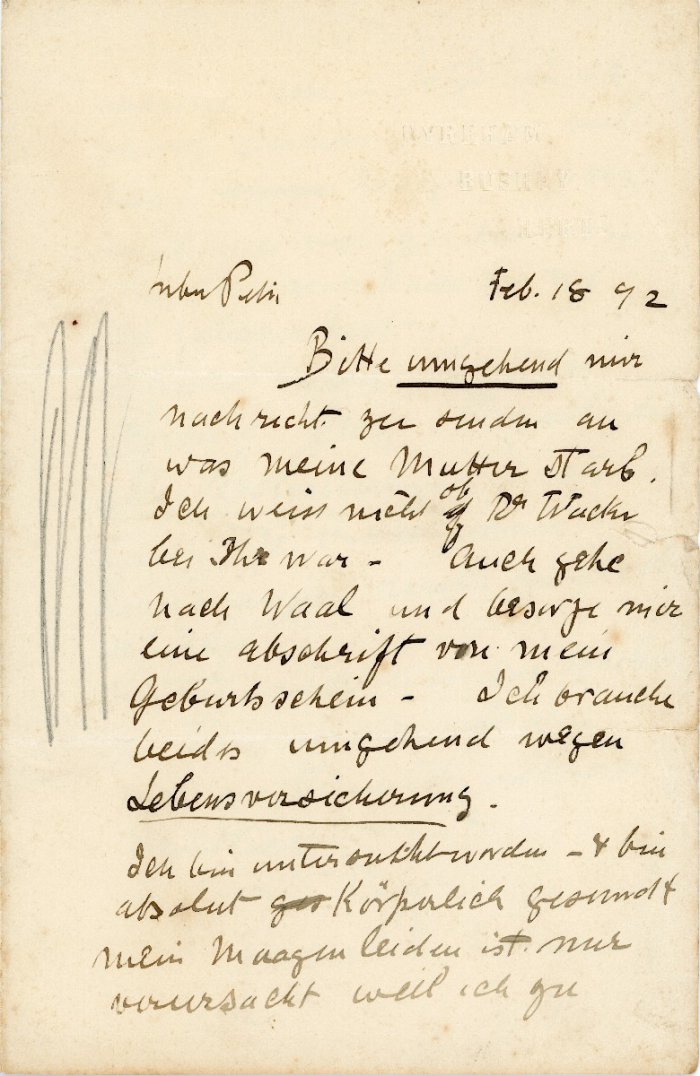 DYREHAM
BUSHEY
HERTS.
Lieber Peter Feb. 18 92
Bitte umgehend mir
nachricht zu senden an
was meine Mutter starb.
Ich weiss nicht ob Dr Wacker
bei Ihr war - Auch gehe
nach Waal und besorge mir
eine abschrift von mein
Geburtsschein - Ich brauche
beides umgehend wegen
Lebensversicherung.
Ich bin untersucht worden - & bin
absolut Körperlich gesund &
mein Maagenleiden ist nur
verursacht weil ich zu